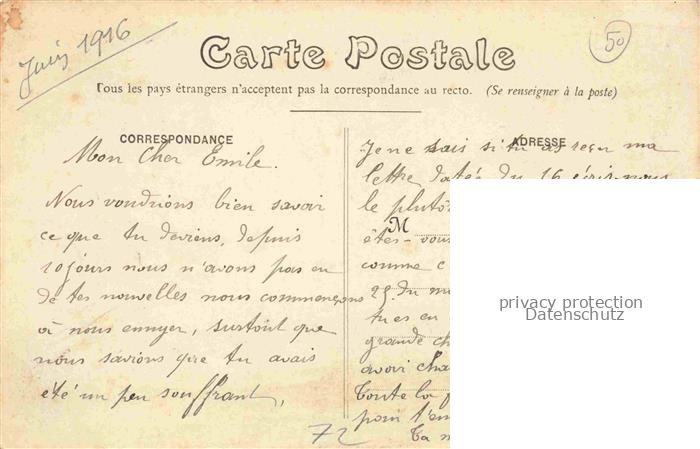 Juin 1916
50
Carte Postale
Tous les pays étrangers n'acceptent pas la correspondance au recto. (Se renseigner à la poste)
CORRESPONDANCE
Mon Cher Emile.
Nous voudrions bien savoir
ce que tu deviens, depuis
10 jours nous n'avons pas eu
de tes nouvelles nous commençons
à nous ennuyer, surtout que
nous savions que tu avais
été un peu souffrant,
72
ADRESSE
Je ne sais si tu as reçu ma
lettre datée du 16 écris-nous
le plutôt
M
êtes-vous
comme c
29 du m
tu es en
grande ch
avoir cha
Toute la f
pour t'em
Ta m
privacy protection
Datenschutz